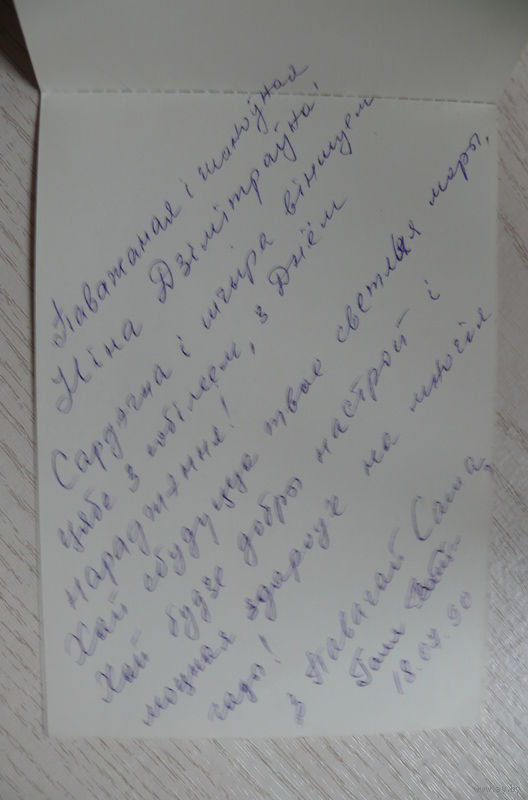 Паважаная і шаноўная
Ніна Дзімітраўна!
Сардэчна і шчыра віншуем
цябе з юбілеем, з Днём
нараджэння!
Хай збудуцца твае светлыя мары,
Хай будзе добры настрой і
моцнае здароўе на многія
гады!
З павагай Саша,
Галя
18.04.90
www.ay.by